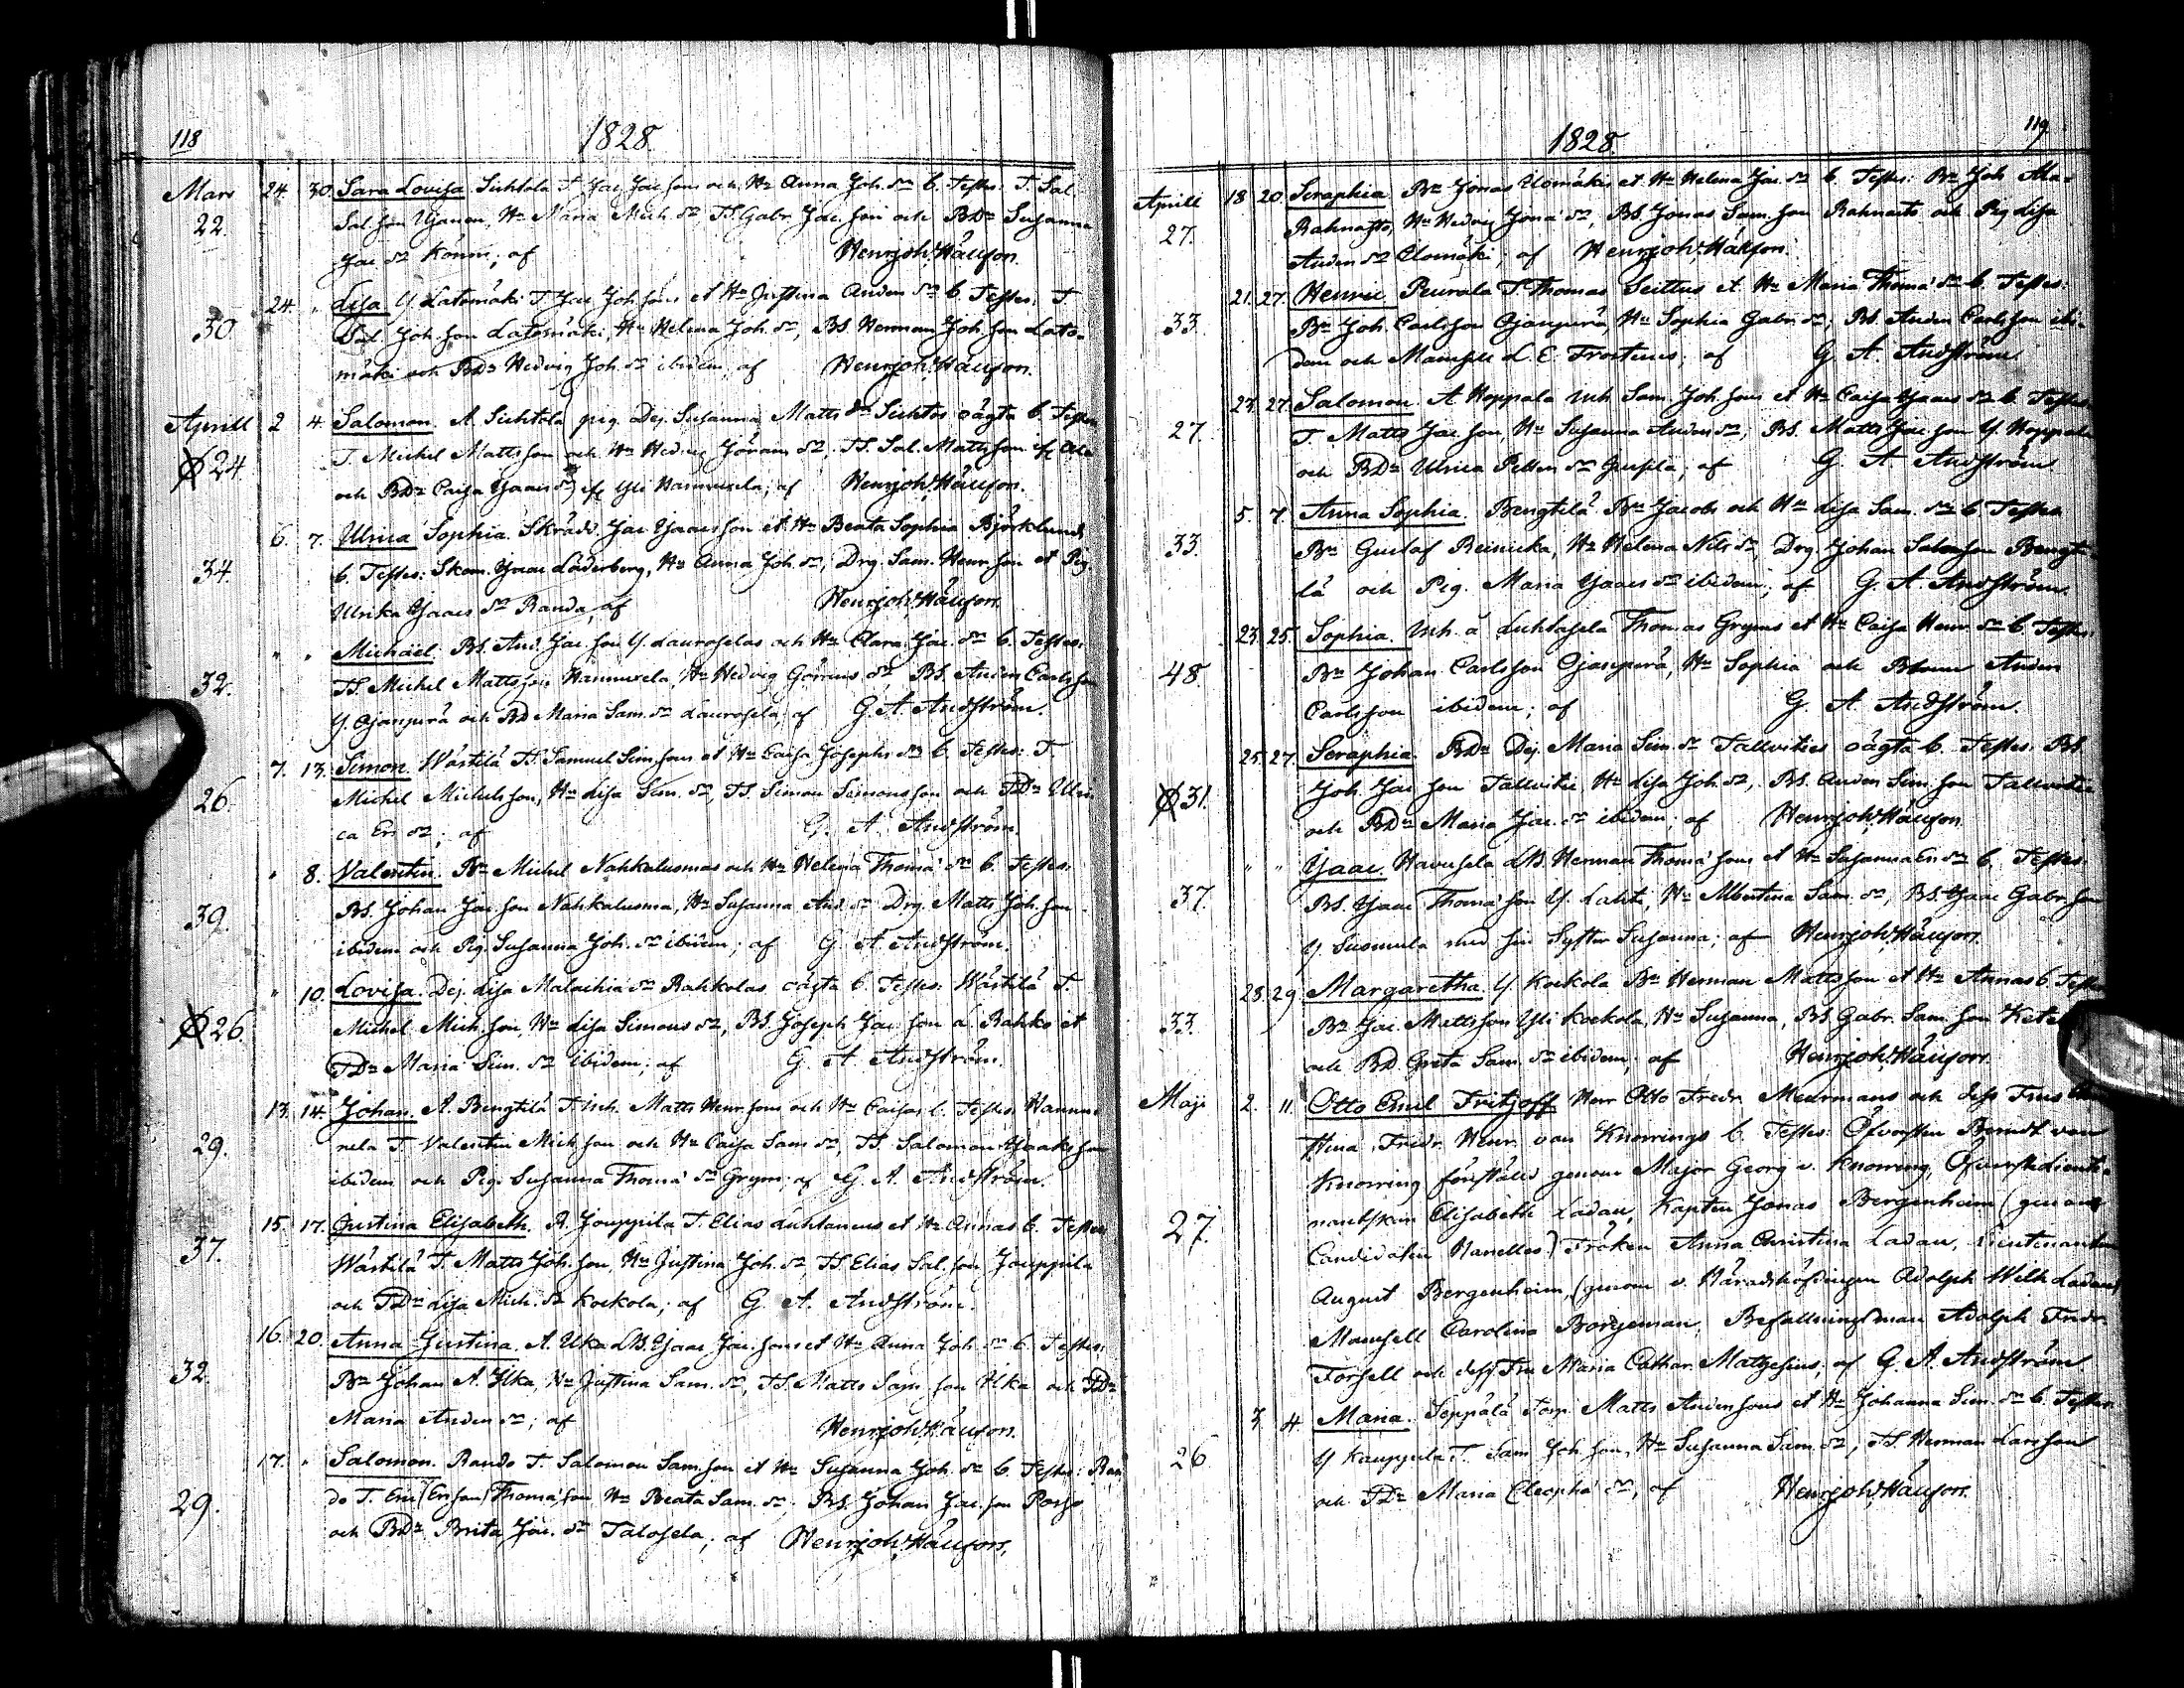 118
1828.
Mars 24. 30. Sara Lovisa. Sihtola T. Jac. Jac. sons och Hu Anna Joh. dr b. Testes: T. Sal.
22. Sal. son Ujanen, Hu Maria Mich. dr, TS. Gabr. Jac. son och BDr Susanna
Jac. dr Könni; af Henrjoh. Häuson.
24. " Lisa. Y. Latomäki T. Jac. Joh. sons et Hu Justina Anders dr b. Testes: T.
30. Sal. Joh. son Latomäki, Hu Helena Joh. dr, BS. Herman Joh. son Lato-
mäki och BDr Hedvig Joh. dr ibidem; af Henrjoh. Häuson.
Aprill 2 4. Salomon. A. Sihtola pig. Dej. Susanna Matts dr Sihtos oägta b. Testes
24. T. Michel Mattsson och Hu Hedvig Görans dr, TS. Sal. Mattsson
och BDr Caisa Isaacs dr Yli Hannuxela; af Henrjoh. Häuson.
6. 7. Ulrica Sophia. Skrädd. Jac. Isaacsson et Hu Beata Sophia Björklunds
34. b. Testes: Skom. Isaac Löderberg, Hu Anna Joh. dr, Drg. Sam. Henr. son et Pig.
Ulrika Isaacs dr Randa, af Henrjoh. Häuson.
" " Michaël. BS. And. Jac. son Y. Lauroselas och Hu Clara Jac. dr b. Testes:
32. TS. Michel Mattsson Hannuxela, Hu Hedvig Görans dr, BS. Anders Carlsson
Y. Ojanperä och BD Maria Sam. dr Laurosela; af G. A. Andström.
7. 13. Simon. Wästilä TS. Samuel Sim. sons et Hu Caisa Josephs dr b. Testes: T.
26. Michel Michelsson, Hu Lisa Sam. dr, TS. Simon Simonsson och TDr Ulri-
ca Er. dr; af G. A. Andström.
" 8. Valentin. Bn Michel Nahkaluomas och Hu Helena Thomæ dr b. Testes:
39. BS. Johan Jac. son Nahkaluoma, Hu Susanna And. dr Drg. Matts Joh. son
ibidem och Pig. Susanna Joh. dr ibidem; af G. A. Andström.
" 10. Lovisa. Dej. Lisa Malachiæ dr Rahkolas oägta b. Testes: Wästilä T.
26. Michel Mich. son, Hu Lisa Simons dr, BS. Joseph Jac. son L. Rahko et
TDr Maria Sim. dr ibidem; af G. A. Andström.
13. 14. Johan. A. Bengtilä T. Inh. Matts Henr. sons och Hu Caisas b. Testes: Hannu-
29. xela T. Valentin Mich. son och Hu Caisa Sam. dr, TS. Salomon Isaaksson
ibidem och Pig. Susanna Thomæ dr Grym; af G. A. Andström.
15. 17. Justina Elisabeth. A. Jouppila T. Elias Luhtanens et Hu Annas b. Testes
37. Wästilä T. Matts Joh. son, Hu Justina Joh. dr, TS Elias Sal. son Jouppila
och TDr Lisa Mich. dr Kockola; af G. A. Andström.
16. 20. Anna Justina. A. Ilka LB. Isaac Jac. sons et Hu Anna Joh. dr b. Testes:
32. Bn Johan A. Ilka, Hu Justina Sam. dr, TS. Matts Sam. son Ilka och TDr
Maria Anders dr; af Henrjoh. Häuson.
17. " Salomon. Rando T. Salomon Sam. son et Hu Susanna Joh. dr b. Testes: Ran
29. do T. Eric (Ers son) Thomæ son Hu Beata Sam. dr, BS. Johan Jac. son Porho
och BDr Brita Jac. dr Talosela; af Henrjoh. Häuson.
119
1828.
Aprill 18 20. Seraphia. Bn Jonas Uomäkis et Hu Helena Jac. dr b. Testes: Bn Joh. Ala-
27. Rahnasto, Hu Hedvig Jonæ dr, BS. Jonas Sam. son Rahnasto och Pig. Lisa
Anders dr Uomäki; af Henrjoh. Häuson.
21. 27. Henric. Peurala T. Thomas Seittus et Hu Maria Thomæ dr b. Testes:
33. Bn Joh. Carlsson Ojanperä, Hu Sophia Gabr. dr, BS. Anders Carlsson ibi-
dem och Mamsell L. E. Frosterus; af G. A. Andström.
23. 27. Salomon. A. Koppala Inh. Sam. Joh. sons et Hu Caisa Isaacs dr b. Testes
27. T. Matts Jac. son, Hu Susanna Anders dr, BS. Matts Jac. son Y. Koppala
och BDr Ulrica Petters dr; af G. A. Andström
5. 7. Anna Sophia. Bengtilä Bn Jacobs och Hu Lisa Sam. dr b. Testes
33. Bn Gustaf Reinicka, Hu Helena Nils dr, Drg. Johan Salomsson Bengti-
lä och Pig. Maria Isaacs dr ibidem; af G. A. Andström.
23. 25. Sophia. Inh. å Luhtasela Thomas Gryms et Hu Caisa Henr. dr b. Testes:
48. Bn Johan Carlsson Ojanperä, Hu Sophia och Anders
Carlsson ibidem; af G. A. Andström.
25. 27. Seraphia. BDr Dej. Maria Sim. dr Tallvities oägta b. Testes: BS.
31. Joh. Jac. son Tallvitie, Hu Lisa Joh. dr, BS. Anders Sim. son Tallvitie
och BDr Maria Jac. dr ibidem; af Henrjoh. Häuson.
" " Isaac. Havusela LB. Herman Thomæ sons et Hu Susanna Er. dr b. Testes:
37. BS. Isaac Thomæ son Y. Lahti, Hu Albertina Sam. dr, BS. Isaac Gabr. son
Y. Suomela med sin Syster Susanna; af Henrjoh. Häuson.
28. 29. Margaretha. Y. Kockola Bn Herman Mattsson et Hu Annas b. Testes
33. Bn Jac. Mattsson Yli Kockola, Hu Susanna, BS. Gabr. Sam. son
och BD. Greta Sam. dr ibidem; af Henrjoh. Häuson.
Maji 2. 11. Otto Emil Fritjoff. Herr Otto Fredr. Meurmans och dess Frus
Fredr. Henr. von Knorrings b. Testes: Öfversten Berndt von
Knorring föreställd genom Major Georg v. Knorring, Öfverstelieute-
nantskan Elisabeth Ladau, Kapten Jonas Bergenheim (genom
27. Candidaten Kanelles) Fröken Anna Christina Ladau, Lieutenanten
August Bergenheim, (genom v. Häradshöfdingen Adolph Wilh. Ladau)
Mamsell Carolina Borgeman, Befallningsman Adolph Fredr.
Forsell och dess Fru Maria Cathar. Mathesius; af G. A. Andström
3. 4. Maria. Seppälä Torp. Matts Anders sons et Hu Johanna Sim. dr b. Testes:
26 Y. Kauppila T. Sam. Joh. son, Hu Susanna Sam. dr, TS. Herman Larsson
och TDr Maria Cleophæ dr, af Henrjoh. Häuson.